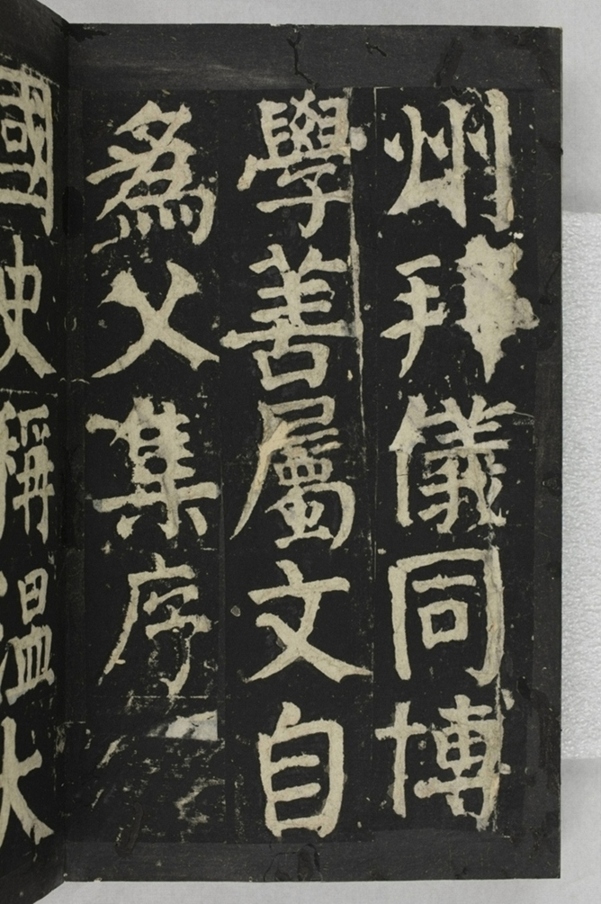 州拜儀同博
學善屬文自
為父集序
國史稱溫大